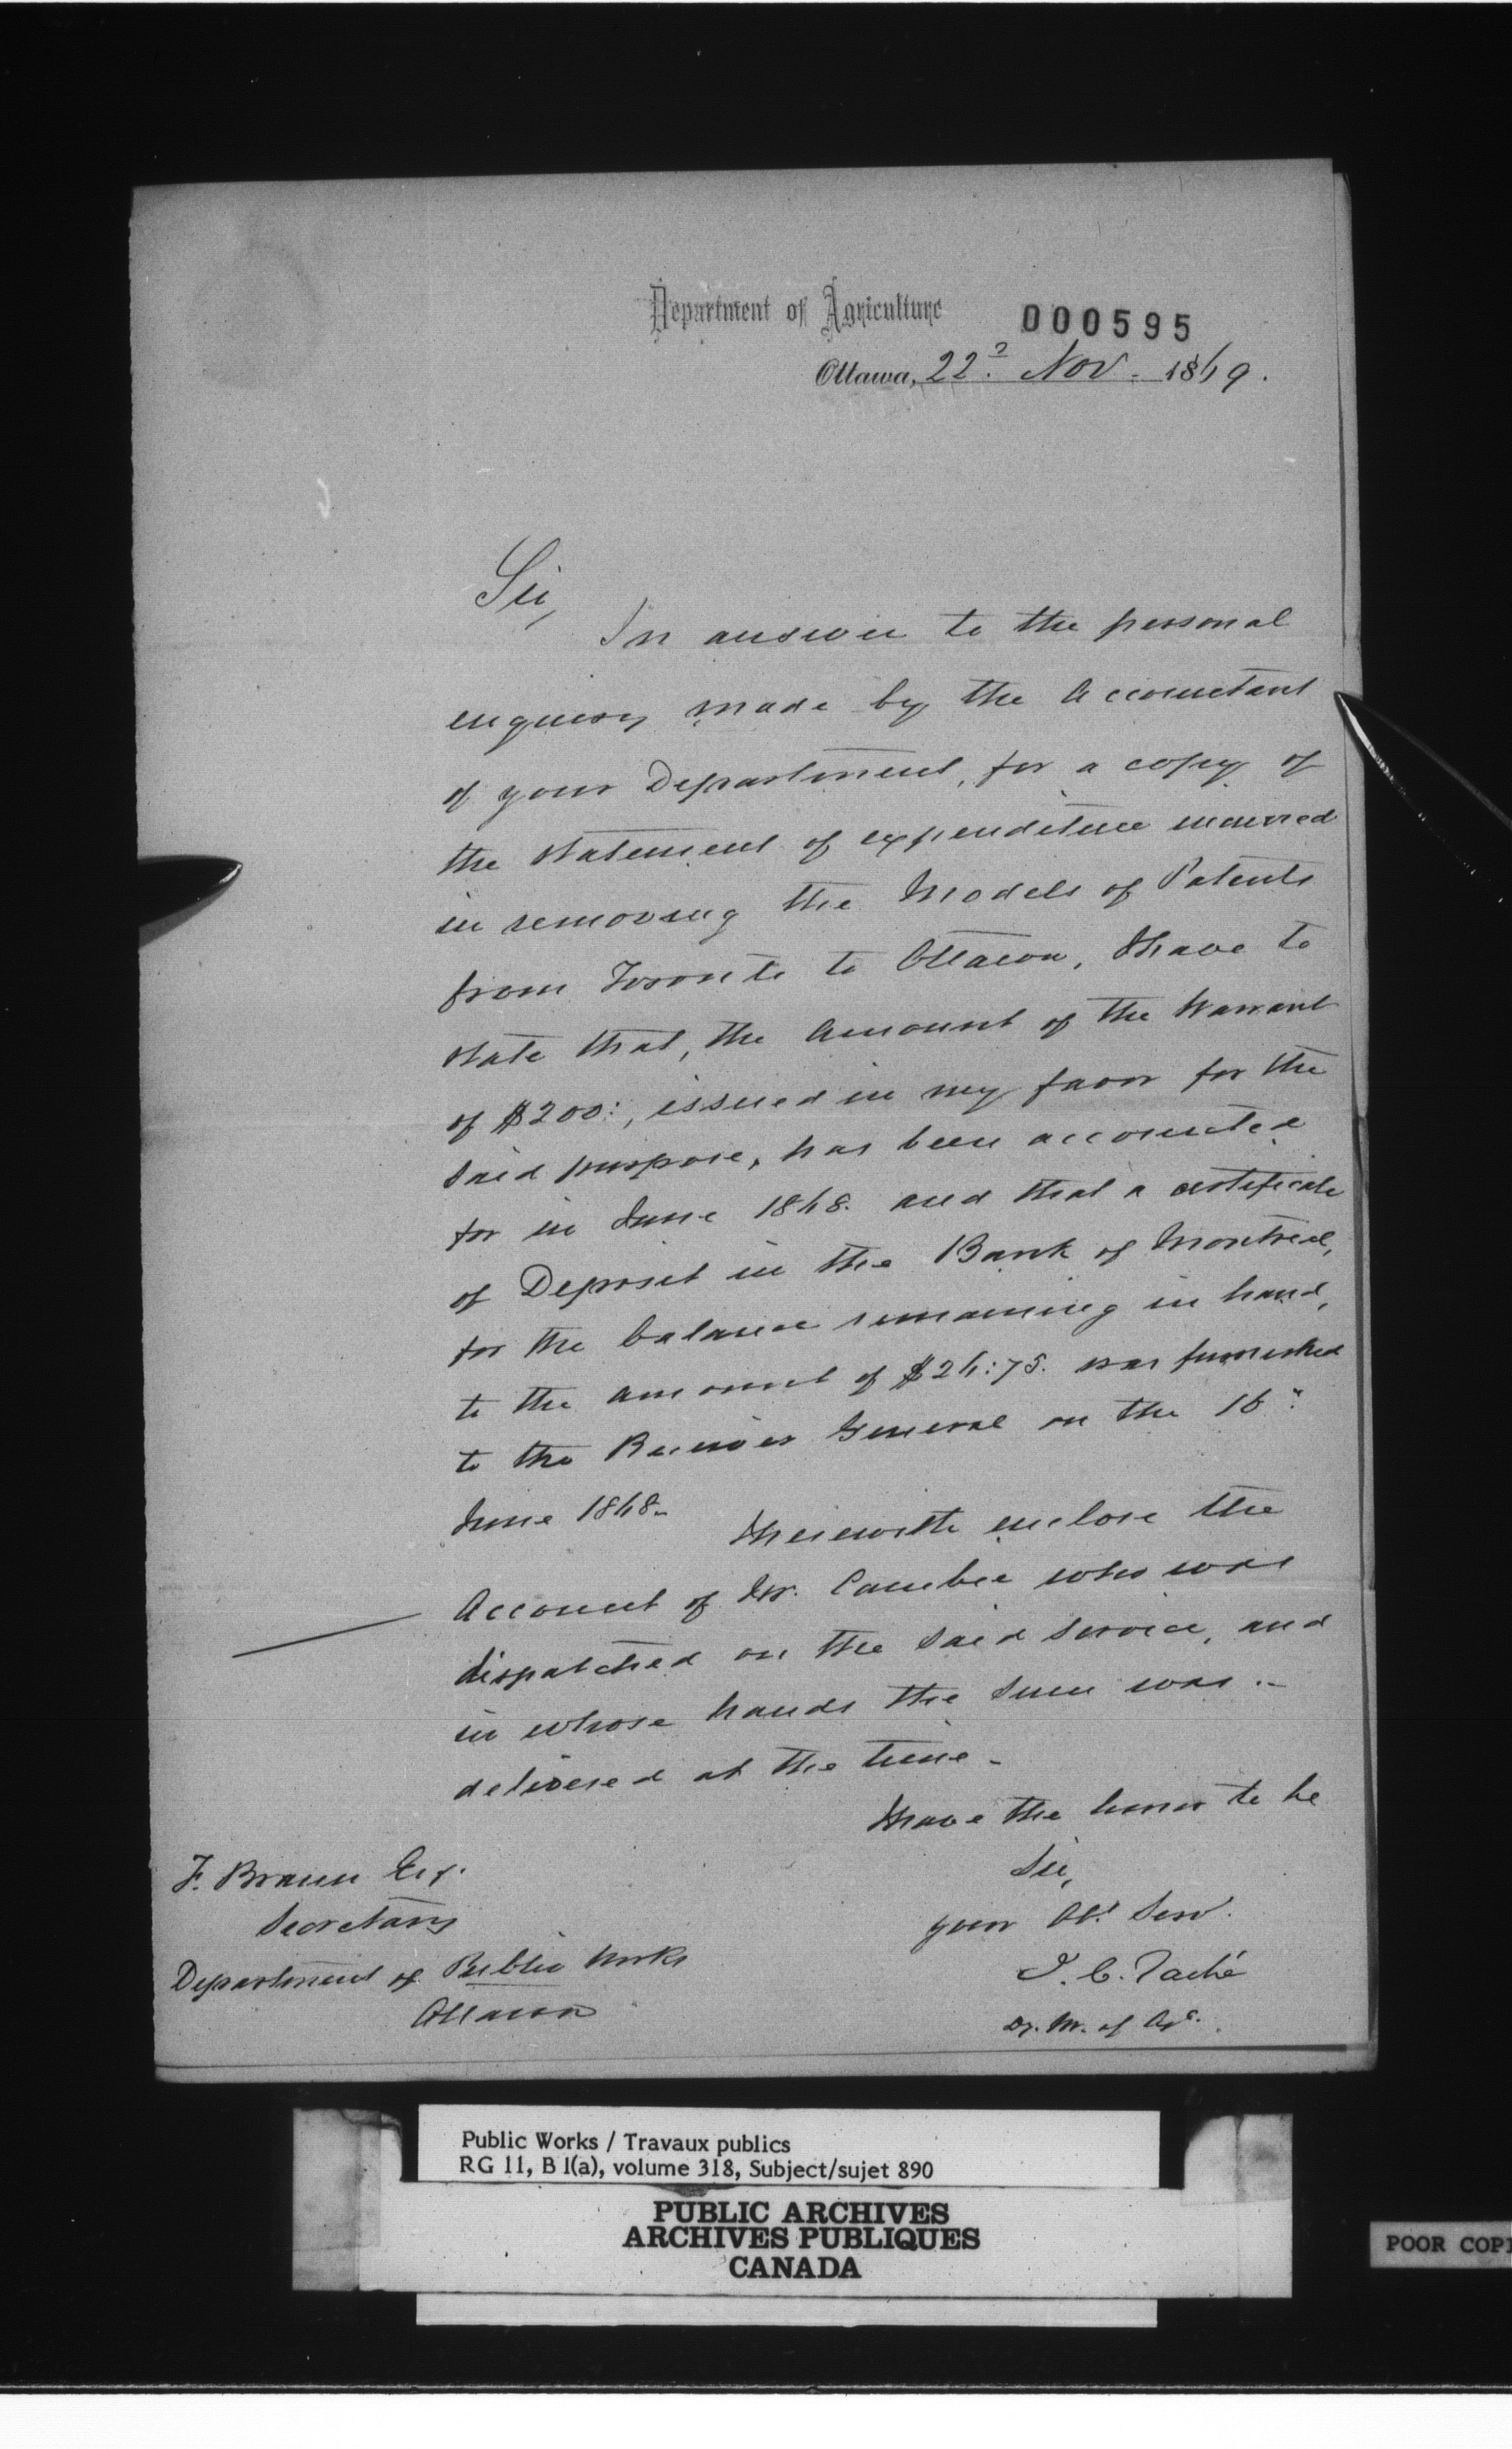 Department of Agriculture
000595
Ottawa, 22d. Nov. 1869.
Sir,
In answer to the personal
enquiry made by the Accountant
of your Department, for a copy of
the statement of expenditure incurred
in removing the Models of Patents
from Toronto to Ottawa, I have to
state that, the Amount of the Warrant
of $200:, issued in my favor for the
said purpose, has been accounted
for in June 1868. and that a certificate
of Deposit in the Bank of Montreal,
for the balance remaining in hand,
to the amount of $26:75. was furnished
to the Receiver General on the 16":
June 1868.
I herewith enclose the
Account of Mr. Cambie who was
dispatched on the said service, and
in whose hands the sum was
delivered at the time.
I have the honor to be
Sir,
your Obt. Serv.
J. C. Taché
Dy. M. of Agr.
F. Braun Esq.
Secretary
Department of Public Works
Ottawa
Public Works / Travaux publics
RG 11, B 1(a), volume 318, Subject/sujet 890
PUBLIC ARCHIVES
ARCHIVES PUBLIQUES
CANADA
POOR COPY